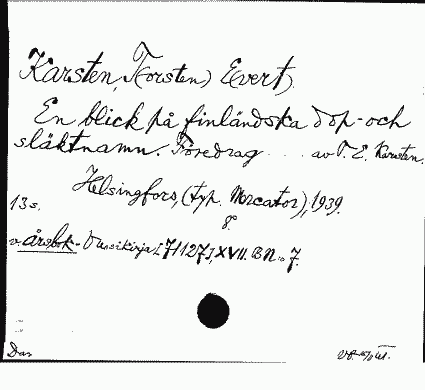 Karsten, T(orsten) E(vert).
En blick på finländska dop- och
släktnamn. Föredrag .... av T. E. Karsten.
Helsingfors, (typ. Mercator), 1939.
8°.
13 s.
v. årsbok - Vuosikirja, [71127], XVII. B N:o 7.
Das